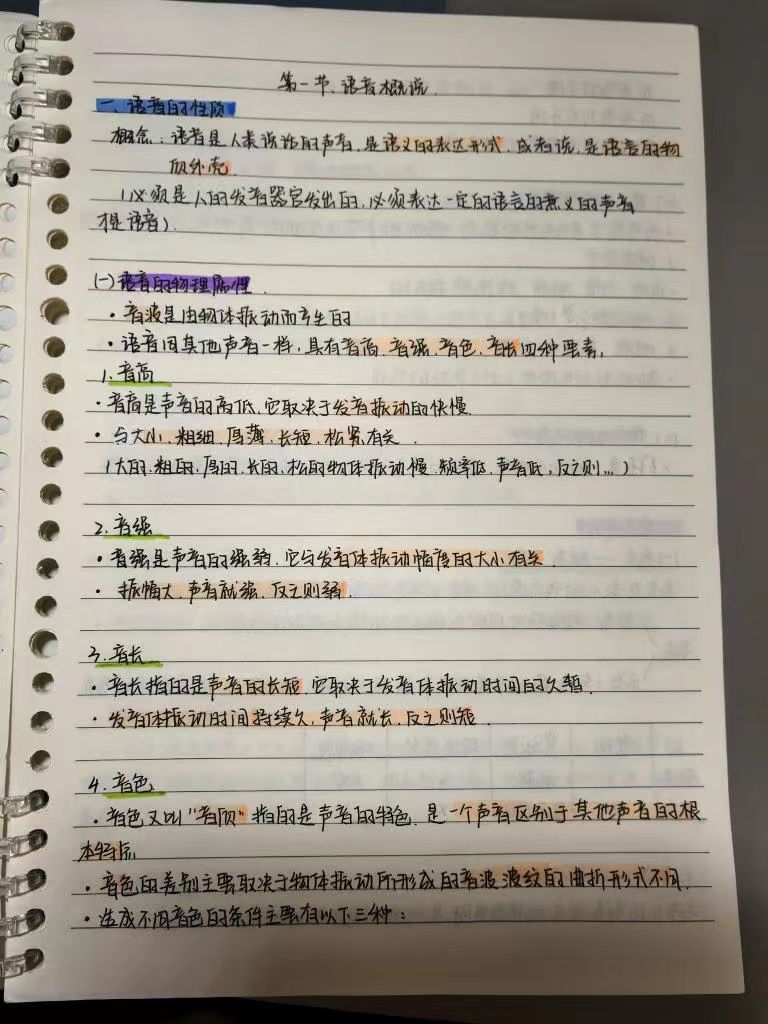 第一节、语音概说.
一、语音的性质
概念：语音是人类说话的声音,是语义的表达形式,或者说,是语言的物
质外壳.
(必须是人的发音器官发出的,必须表达一定的语言的意义的声音
才是语音).
(一)语音的物理属性.
·音波是由物体振动而产生的
·语音同其他声音一样,具有音高、音强、音色、音长四种要素,
1.音高
·音高是声音的高低,它取决于发音振动的快慢.
·与大小、粗细、厚薄、长短、松紧有关.
(大的、粗的、厚的、长的、松的物体振动慢、频率低、声音低,反之则...)
2.音强
·音强是声音的强弱,它与发音体振动幅度的大小有关.
·振幅大、声音就强、反之则弱.
3.音长
·音长指的是声音的长短,它取决于发音体振动时间的久暂.
·发音体振动时间持续久,声音就长,反之则短.
4.音色
·音色又叫"音质"指的是声音的特色,是一个声音区别于其他声音的根
本特点
·音色的差别主要取决于物体振动所形成的音波波纹的曲折形式不同.
·造成不同音色的条件主要有以下三种: